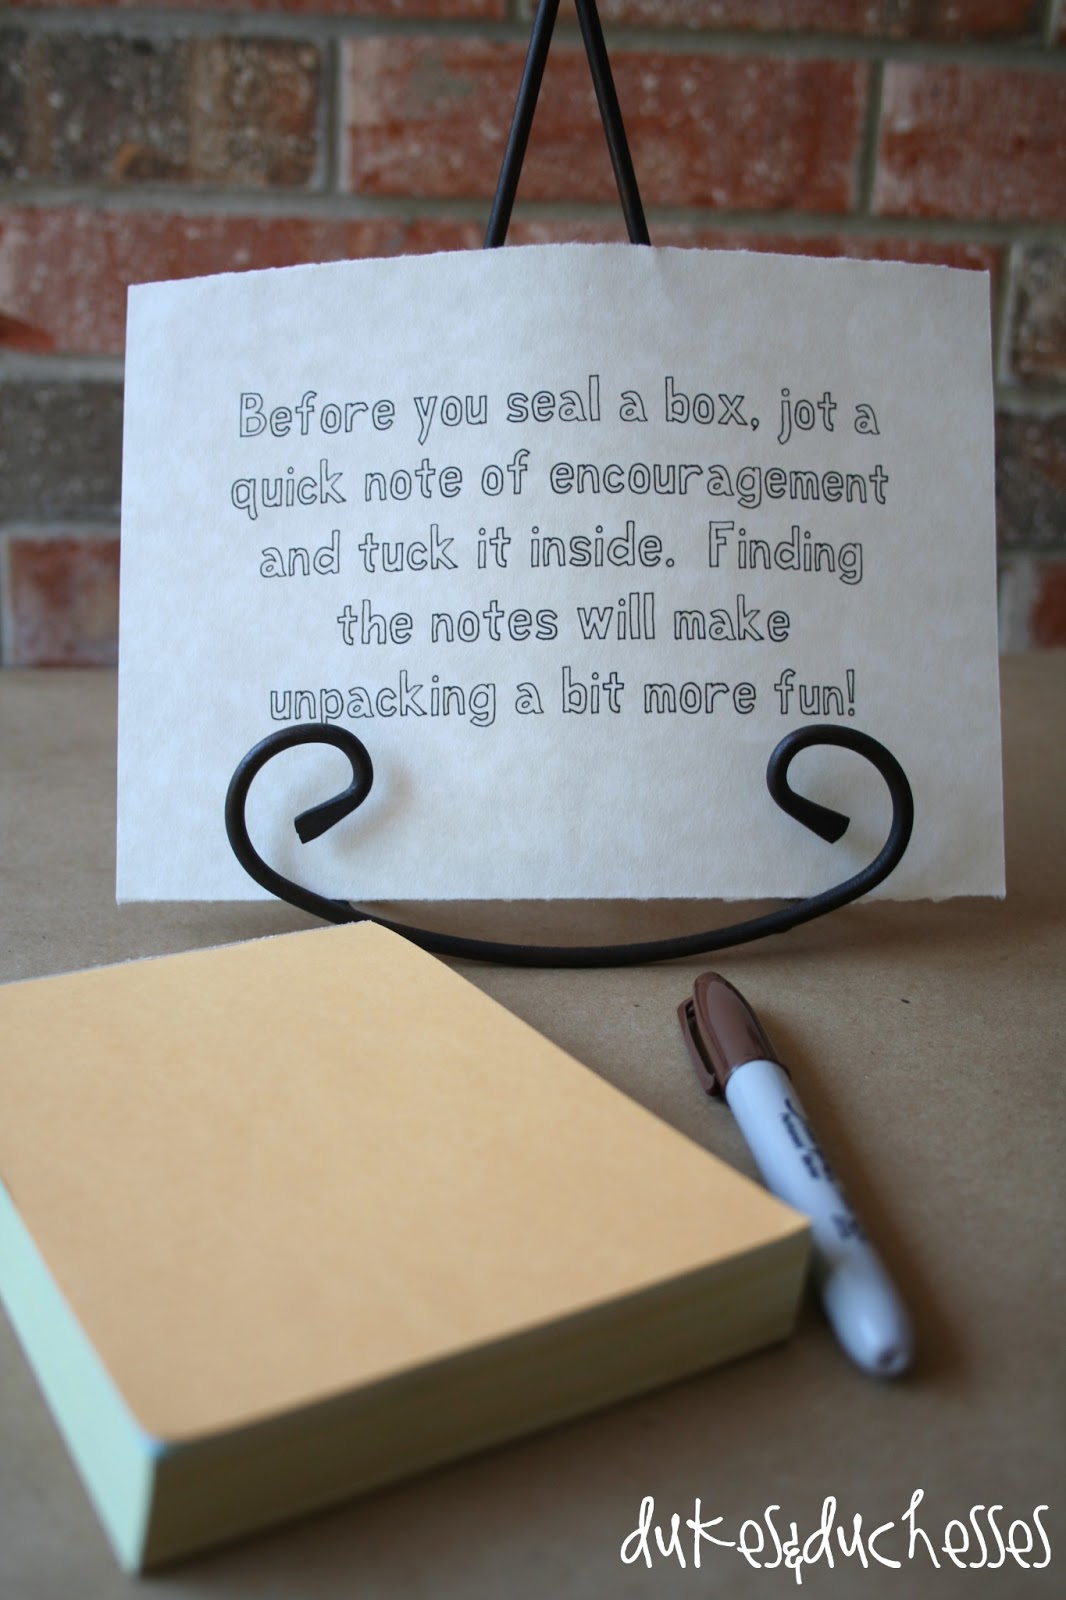 Before you seal a box, jot a
quick note of encouragement
and tuck it inside. Finding
the notes will make
unpacking a bit more fun!
dukes&duchesses